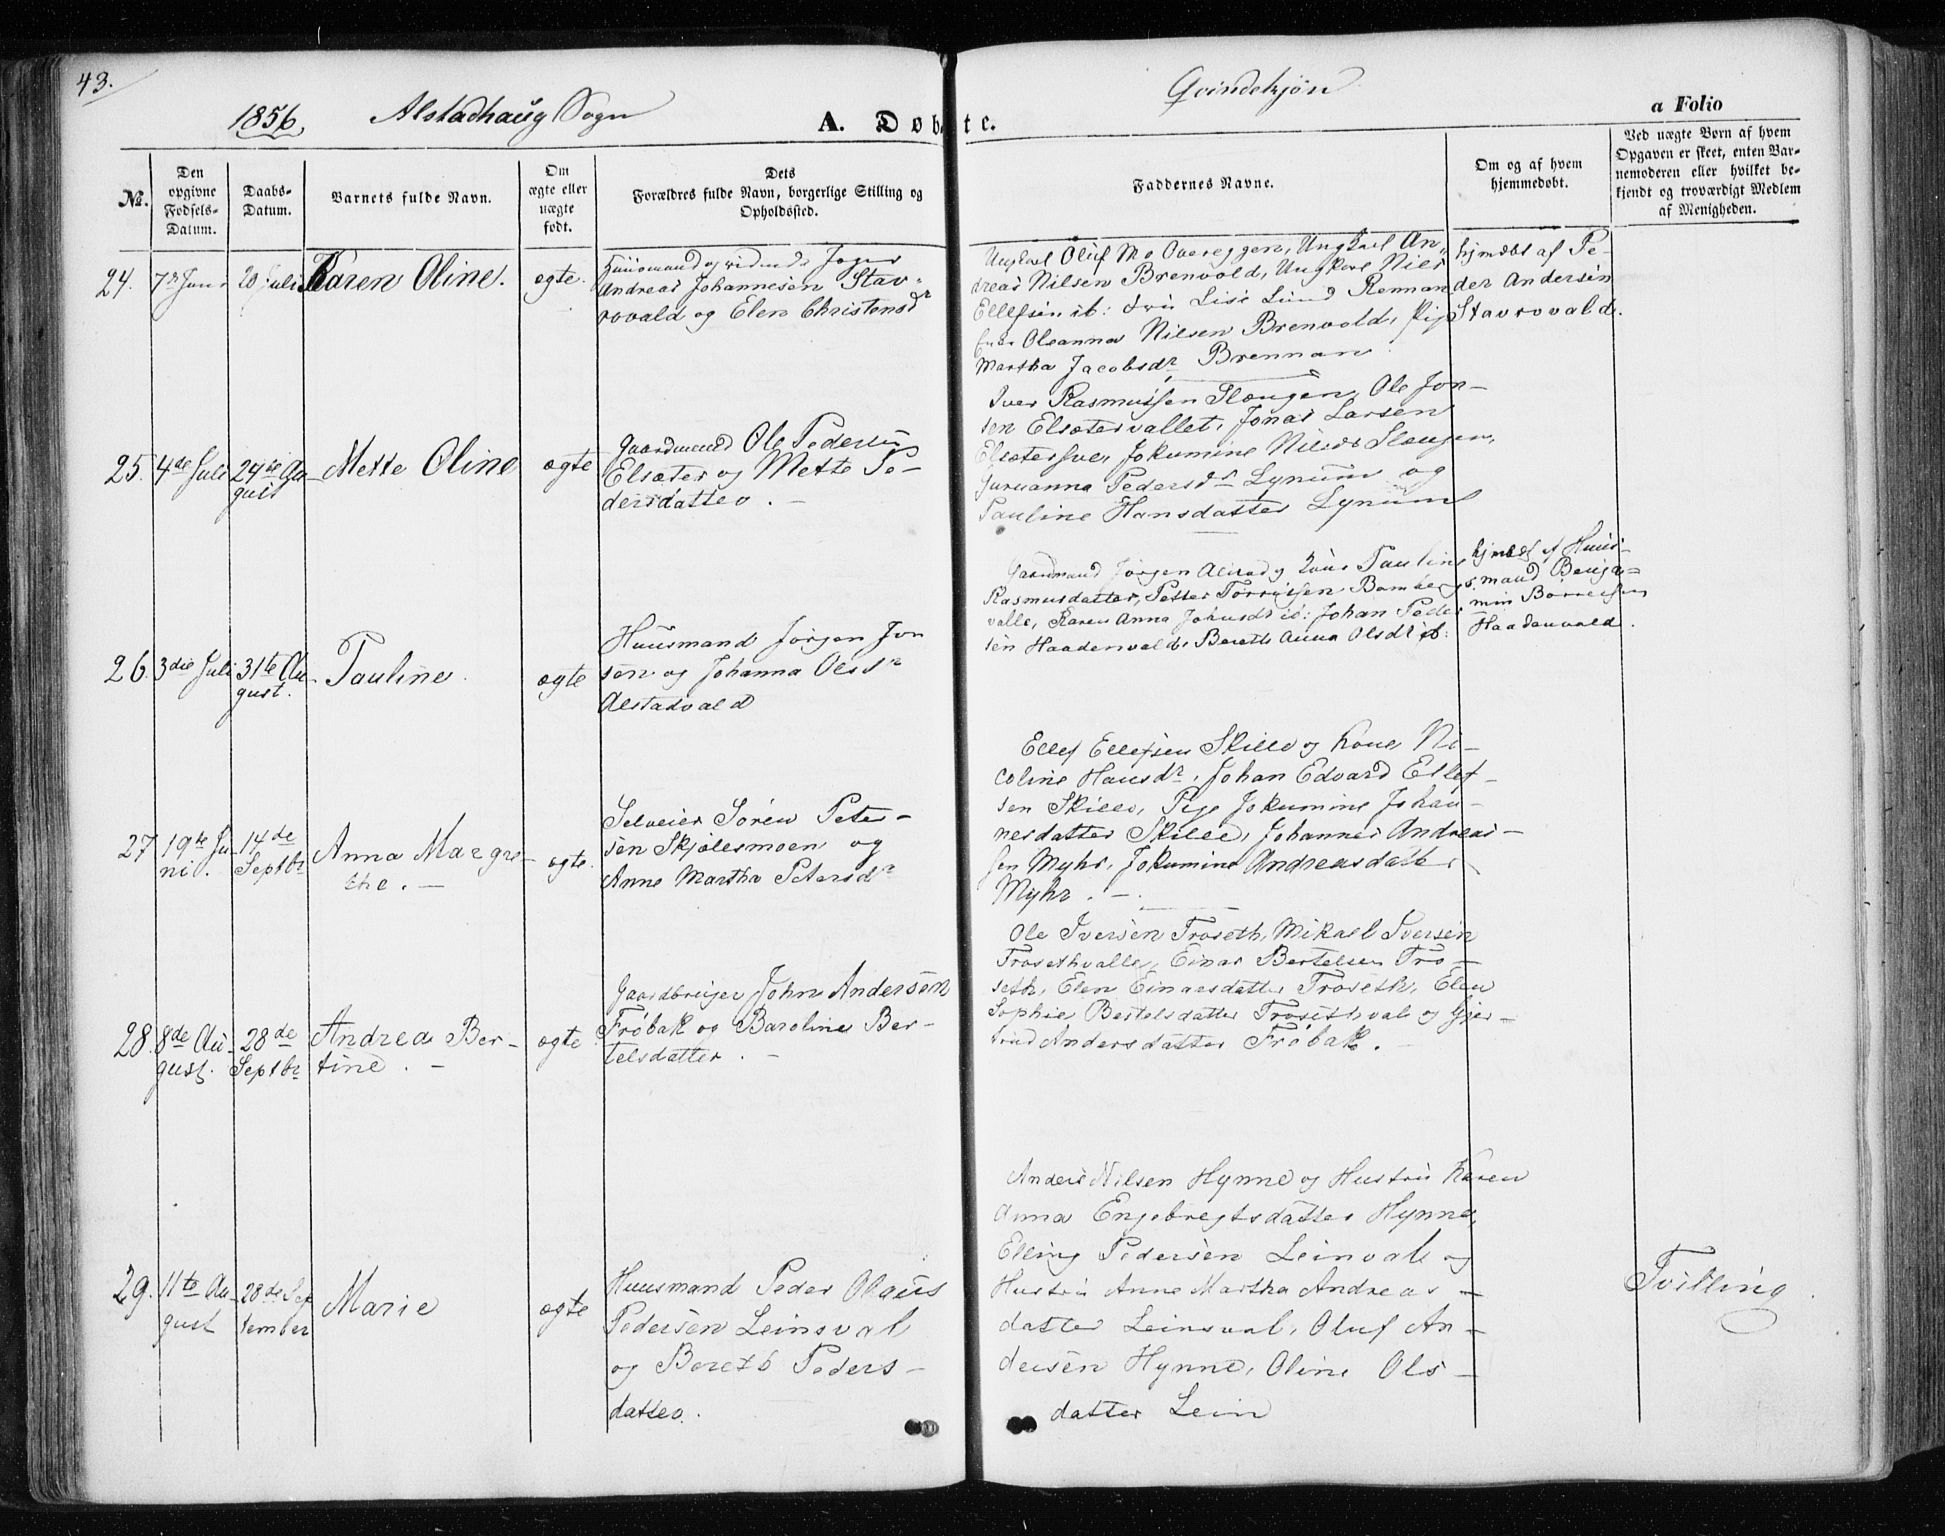 43.
1856. Alstadhaug Sogn
A. Døbte.
Qvindekjøn
a Folio
No.
Den opgivne Fødsels-Datum.
Daabs-Datum.
Barnets fulde Navn.
Om ægte eller uægte født.
Dets Forældres fulde Navn, borgerlige Stilling og Opholdssted.
Faddernes Navne.
Om og af hvem hjemmedøbt.
Ved uægte Børn af hvem Opgaven er skeet, enten Barnemoderen eller hvilket bekjendt og troværdigt Medlem af Menigheden.
24.
20 Juli
Karen Oline.
ægte.
Andreas Johannesen Stav-
rovald og Elen Christensdr
Ungkarl Oluf Mo Overeggen, Ungkarl An-
dreas Nilsen Brenvold, Ungkarl Nils
Ellefsen ib: Lise Lund Rennan
Oleanna Nilsen Brenvold, Pige
Martha Jacobsdr Brennan
hjmdbt af Pe-
der Andersen
Stavrovald.
25.
4de Juli
24de Au-
gust
Mette Oline
ægte
Gaardmand Ole Pedersen
Elsæter og Mette Pe-
dersdatter. -
Iver Rasmussen Slougen, Ole Jon-
sen Elsætervallet, Jonas Larsen
Jokumine Nilsdr Slougen,
Guruanna Pedersdr Lynum og
Pauline Hansdatter Lynum
26.
3die Juli
31te Au-
gust.
Pauline.
ægte
Huusmand Jørgen Jon
sen og Johanna Olsdr
Alstadvald
Gaardmand Jørgen Alstad og Kone Pauline
Rasmusdatter, Petter
valle, Karen Anna Johnsdr ib: Johan Peder
sen Haadenvald, Bereth Anna Olsdr ib:
hjmdbt af Huus-
mand Benja-
min Børresen
Haadenvald.
27
19te Ju-
ni.
14de
Septbr
Anna Margre-
the. -
ægte.
Selveier Søren Peter-
sen Skjølesmoen og
Anne Martha Petersdr
Ellef Ellefsen Skille og Kone Ni-
coline Hansdr, Johan Edvard Ellef-
sen Skille, Pige Jokumine Johan-
nesdatter Skille, Johannes Andreas-
sen Myhr, Jokumine Andreasdatter
Myhr. -
28.
8de Au-
gust.
28de
Septbr
Andrea Ber-
tine. -
ægte
Gaardbruger John Andersen
Frøbak og Baroline Ber-
telsdatter. -
Ole Iversen Troseth, Mikael Iversen
Trosethvalle, Einar Bertelsen Tro-
seth, Elen Einarsdatter Troseth, Elen
Sophie Bertelsdatter Trosethvale og Gjer-
trud Andersdatter Frøbak. -
29.
11te Au-
gust
28de Sep
tember
Marie
ægte
Huusmand Peder Olaus
Pedersen Leinsval
og Bereth Peders-
datter.
Anders Nilsen Hynne og Hustru Karen
Anna Engebregtsdatter Hynne,
Elling Pedersen Leinvale og
Hustru Anne Martha Andreas-
datter Leinsval, Oluf An-
dersen Hynne, Oline Ols-
datter Lein
Tvilling.